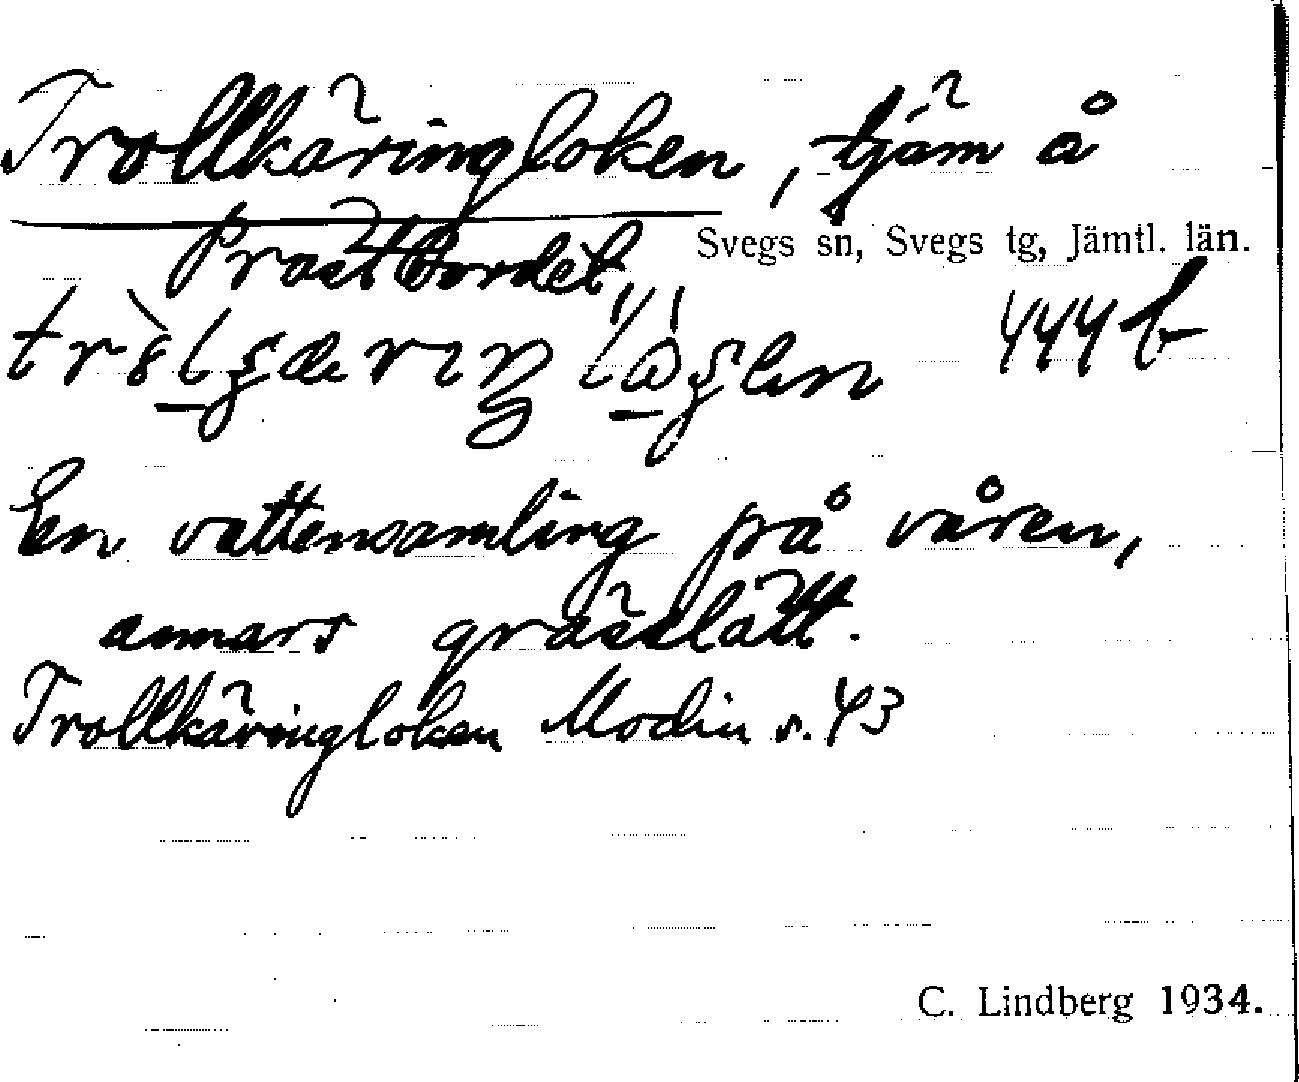 Trollkäringloken, tjäm å
Prästbordet,
Svegs sn, Svegs tg, Jämtl. län.
444 b
En vattensamling på våren,
annars grässlätt.
Trollkäringloken Modin s. 43
C. Lindberg 1934.